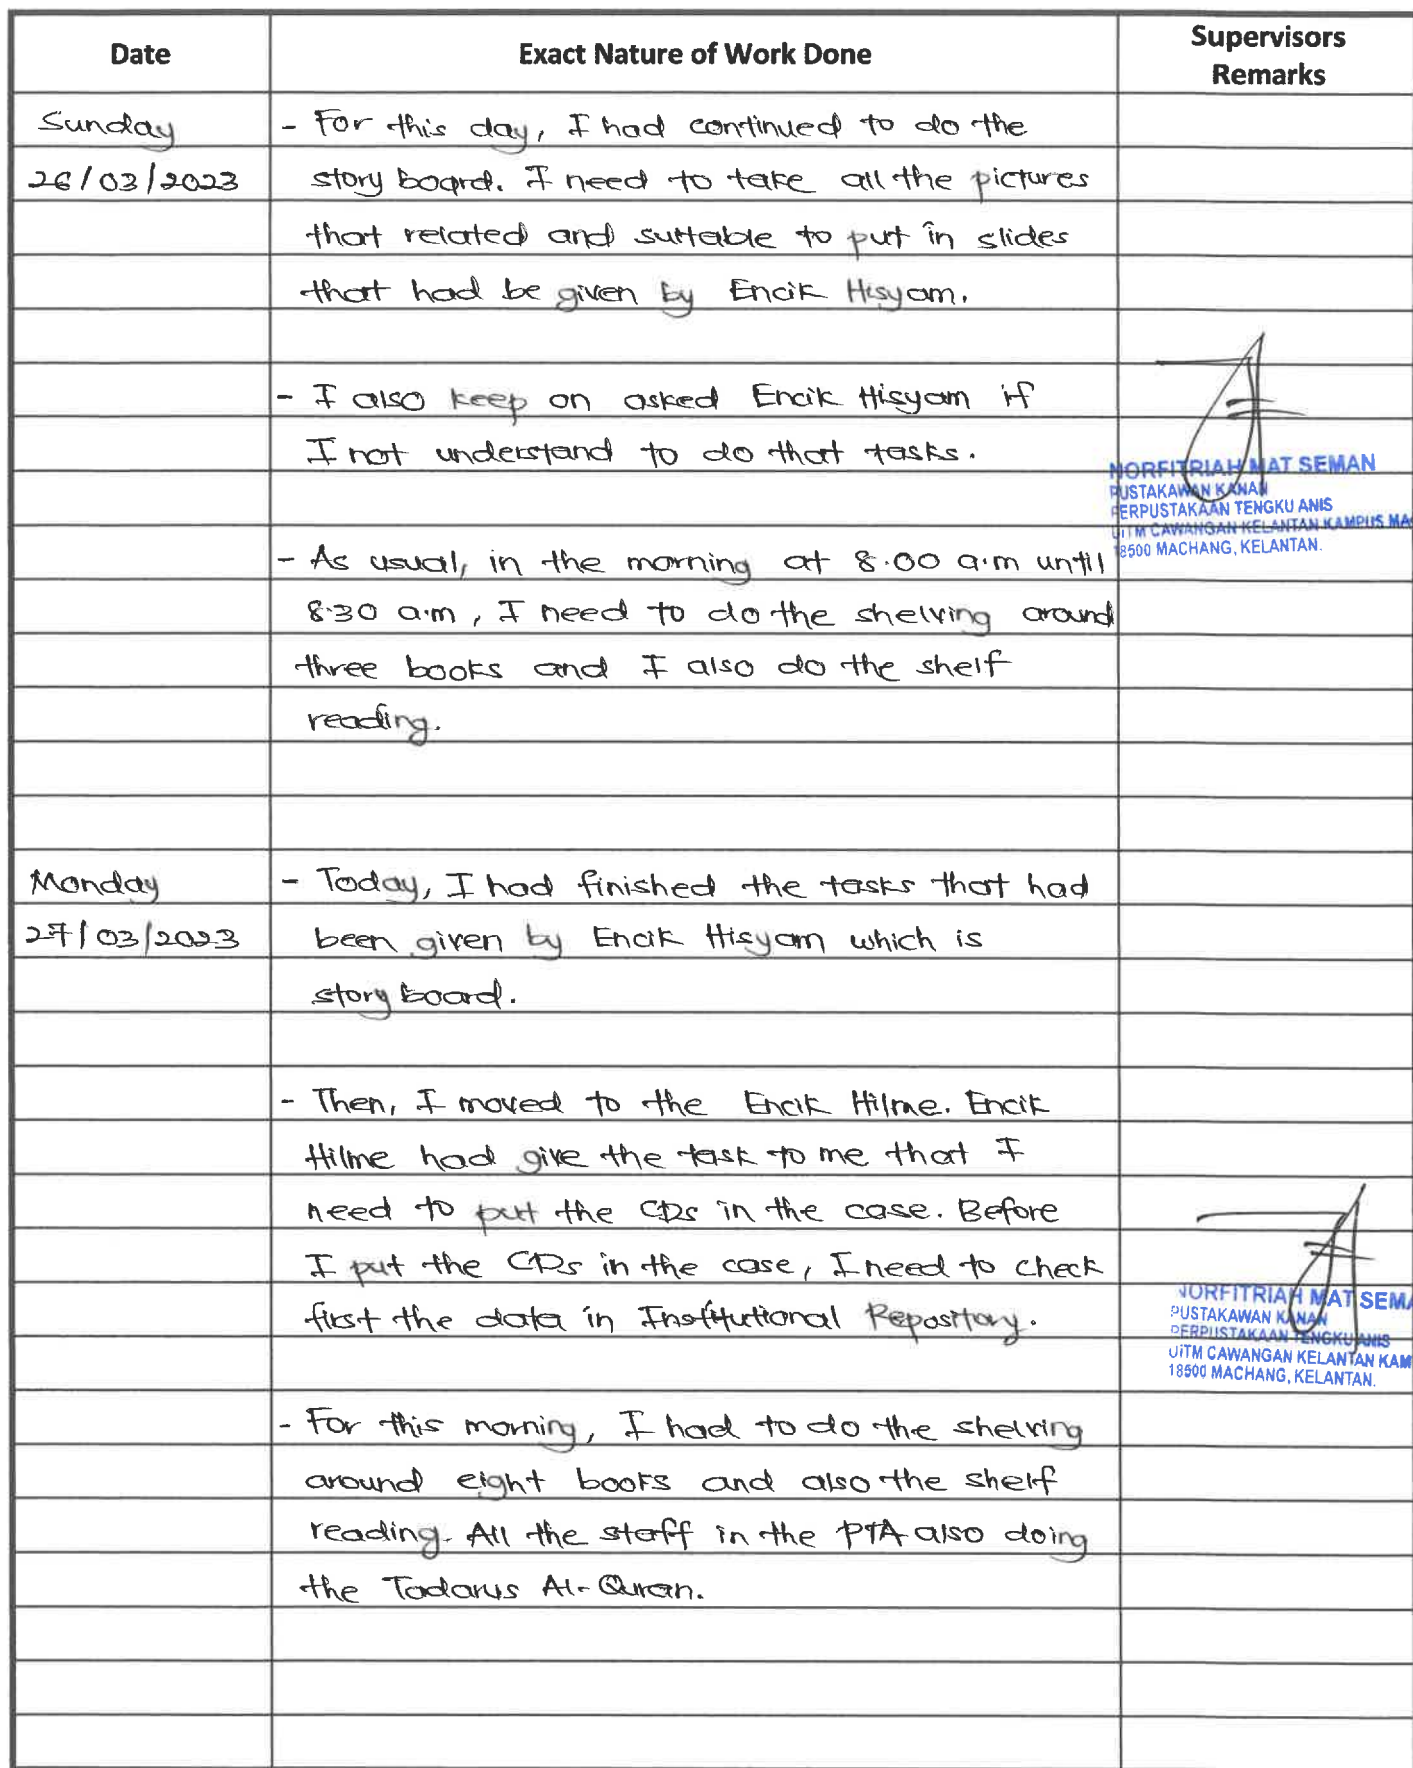 Date
Exact Nature of Work Done
Supervisors
Remarks
Sunday
26/03/2023
- For this day, I had continued to do the
story board. I need to take all the pictures
that related and suitable to put in slides
that had be given by Encik Hisyam.
- I also keep on asked Encik Hisyam if
I not understand to do that tasks.
- As usual, in the morning at 8.00 a.m until
8.30 a.m, I need to do the shelving around
three books and I also do the shelf
reading.
NORFITRIAH MAT SEMAN
PUSTAKAWAN KANAN
PERPUSTAKAAN TENGKU ANIS
UiTM CAWANGAN KELANTAN KAMPUS MA
18500 MACHANG, KELANTAN.
Monday
27/03/2023
- Today, I had finished the tasks that had
been given by Encik Hisyam which is
story board.
- Then, I moved to the Encik Hilme. Encik
Hilme had give the task to me that I
need to put the CDs in the case. Before
I put the CDs in the case, I need to check
first the data in Institutional Repository.
- For this morning, I had to do the shelving
around eight books and also the shelf
reading. All the staff in the PTA also doing
the Tadarus Al-Quran.
NORFITRIAH MAT SEMA
PUSTAKAWAN KANAN
PERPUSTAKAAN TENGKU ANIS
UiTM CAWANGAN KELANTAN KAM
18500 MACHANG, KELANTAN.